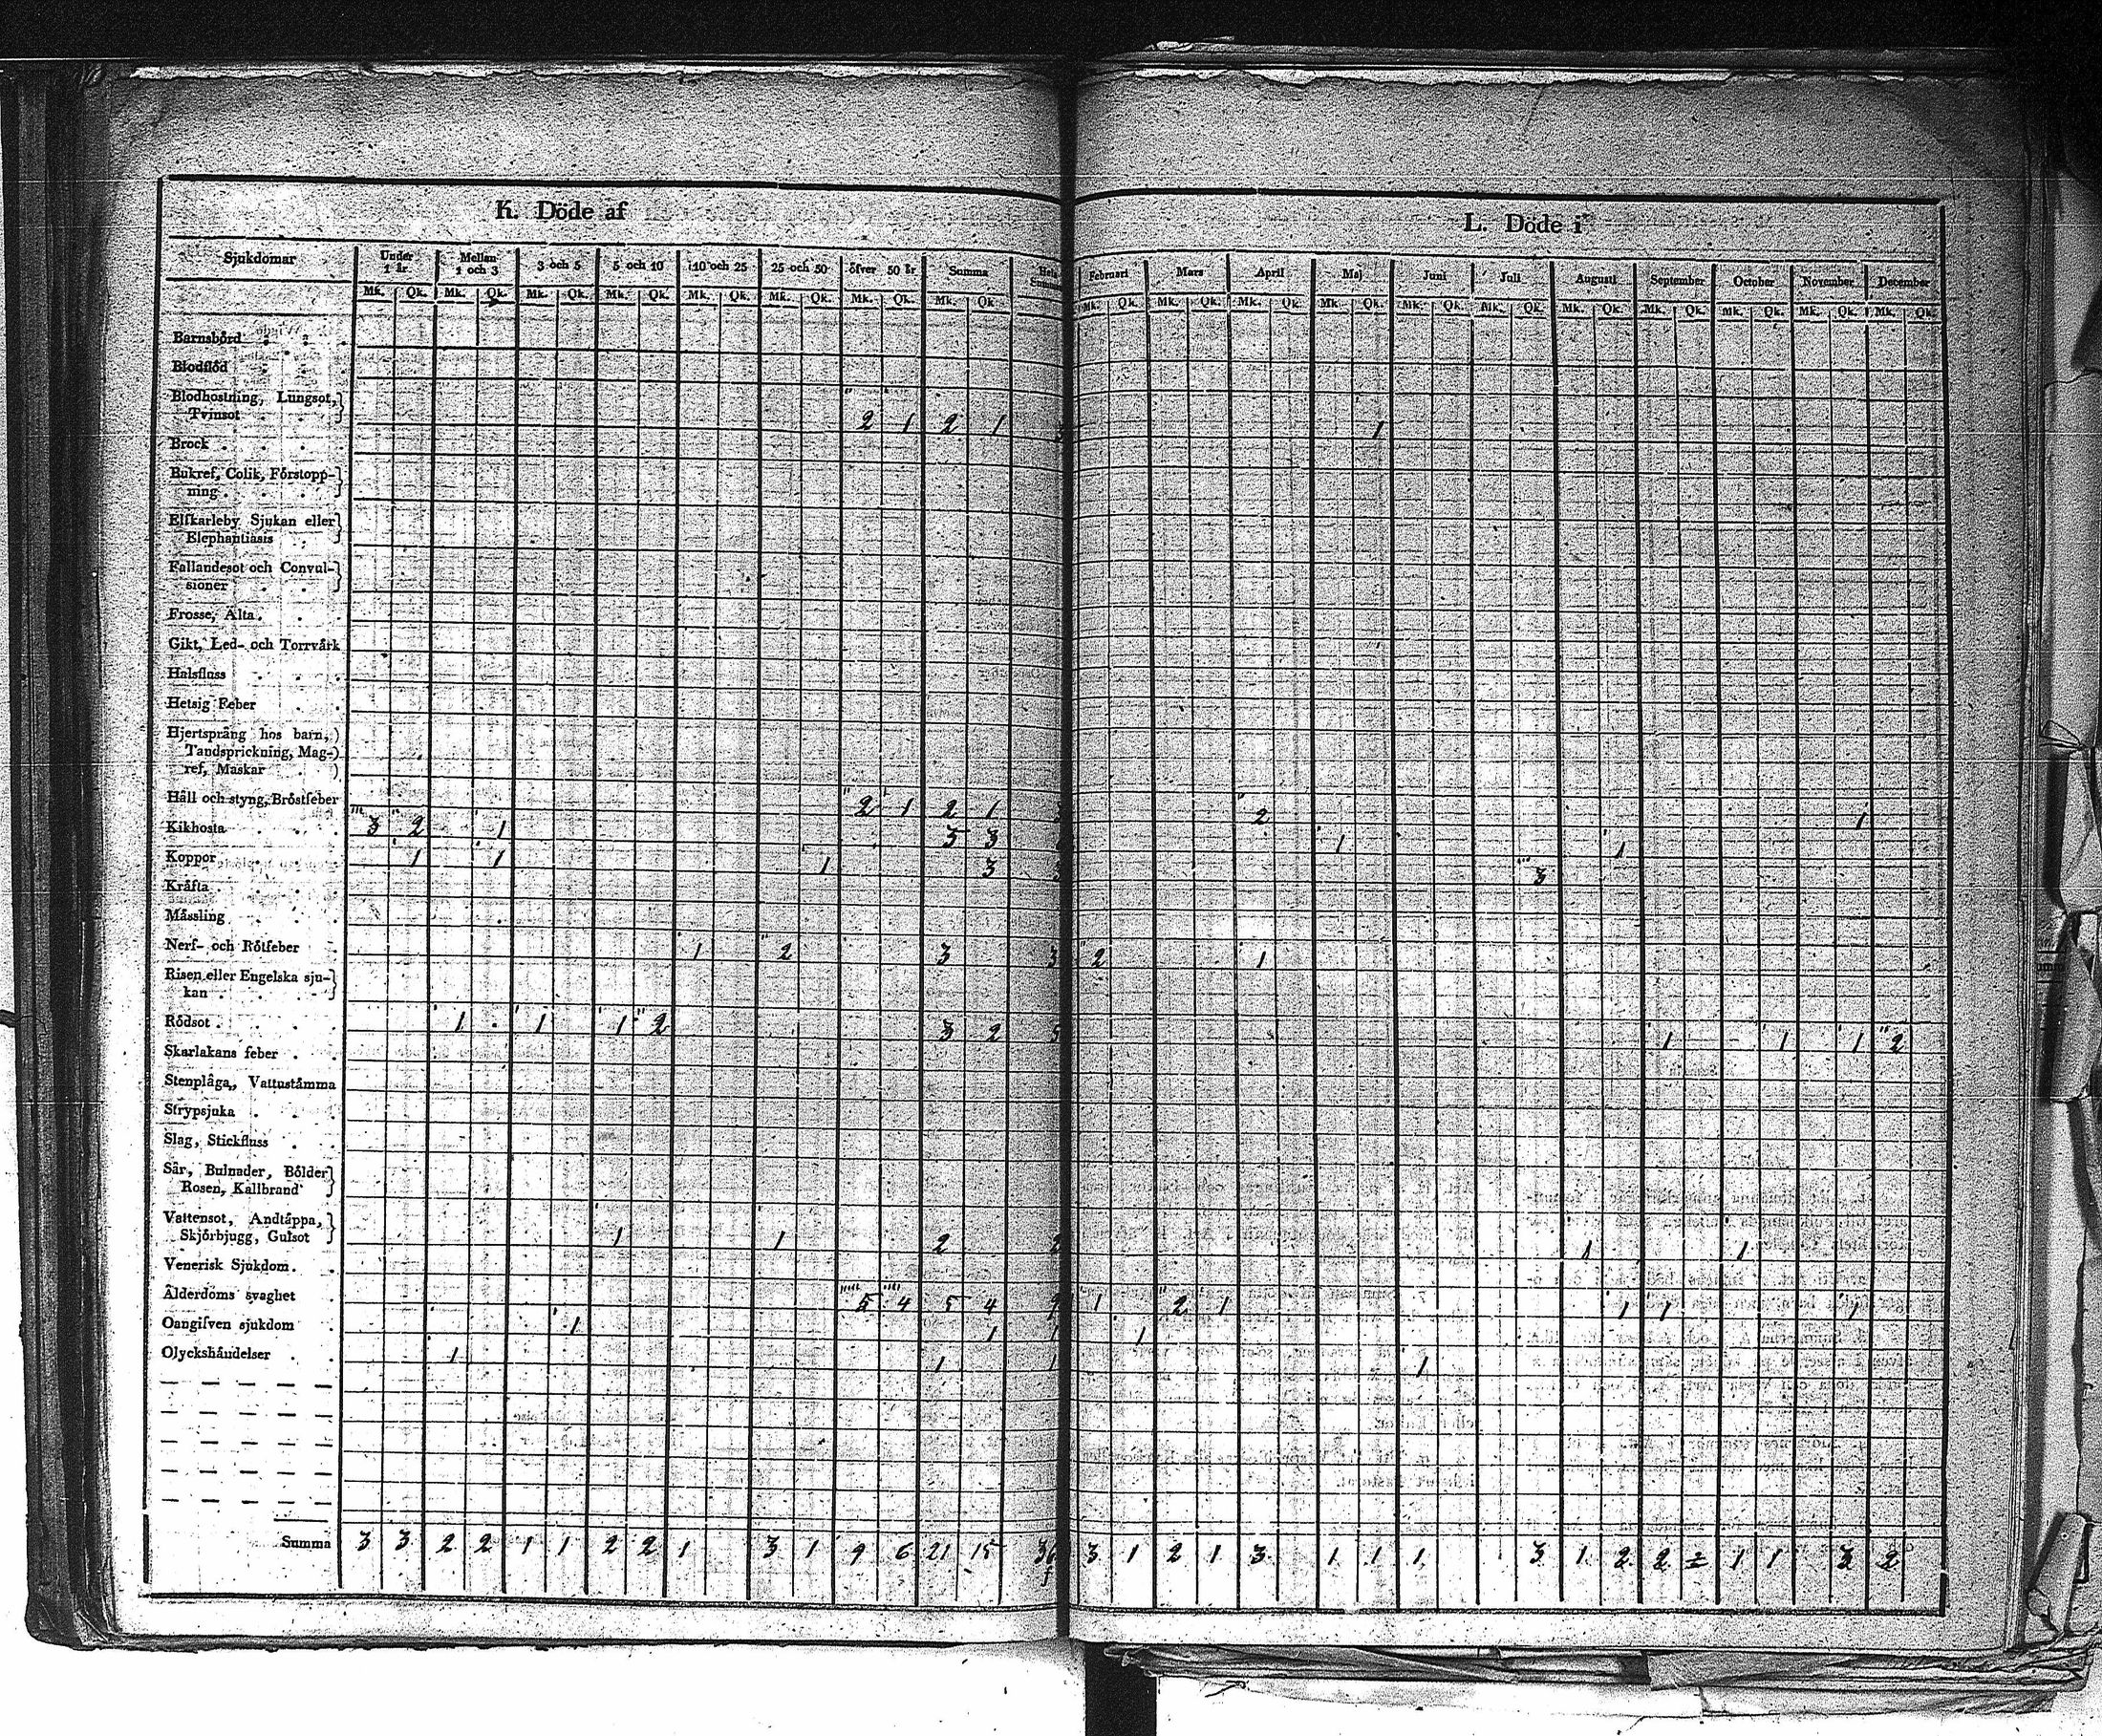 K. Döde af
Sjukdomar Under 1 år. Mellan 1 och 3 3 och 5 5 och 10 10 och 25 25 och 50 öfver 50 år Summa
Mk. Qk. Mk. Qk. Mk. Qk. Mk. Qk. Mk. Qk. Mk. Qk. Mk. Qk. Mk. Qk
Barnsbörd
Blodflöd
Blodhostning, Lungsot,
Tvinsot 2 1 2 1
Brock
Bukref, Colik, Förstopp-
ning
Elfkarleby Sjukan eller
Elephantiasis
Fallandesot och Convul-
sioner
Frosse, Älta
Gikt, Led- och Torrvärk
Halsfluss
Hetsig Feber
Hjertsprång hos barn,
Tandsprickning, Mag-
ref, Maskar
Håll och styng, Bröstfeber 2 1 2 1
Kikhosta 3 2 1 3 3
Koppor 1 1 1 3
Kräfta
Mässling
Nerf- och Rötfeber 1 2 3 3
Risen eller Engelska sju-
kan
Rödsot 1 1 1 2 3 2 5
Skarlakans feber
Stenplåga, Vattustämma
Strypsjuka
Slag, Stickfluss
Sår, Bulnader, Bölder
Rosen, Kallbrand
Vattensot, Andtäppa,
Skjörbjugg, Gulsot 1 1 2 2
Venerisk Sjukdom.
Ålderdoms svaghet 5 4 5 4 9
Oangifven sjukdom 1 1 1
Olyckshändelser 1 1 1
Summa 3 3 2 2 1 1 2 2 1 3 1 9 6 21 15 36
L. Döde i
Februari Mars April Maj Juni Juli Augusti September October November December
Mk. Qk. Mk. Qk. Mk. Qk. Mk. Qk. Mk. Qk. Mk. Qk. Mk. Qk. Mk. Qk. Mk. Qk. Mk. Qk. Mk. Qk.
1
2 1
1 1
3
2 1
1 1 1 2
1 1
1 2 1 1 1 1
1
1
3 1 2 1 3 1 1 1 3 1 2 2 1 1 3 2